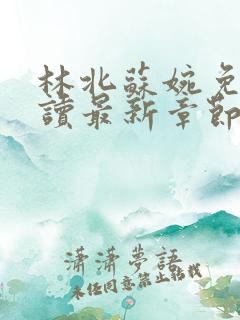 林北蘇婉免
讀最新章節
瀟瀟夢語
未经同意禁止转载